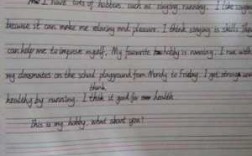 I have lots of hobbies, such as singing running. I like singing
because it can make me relaxing and pleasure. I think singing is skill. They
can help me to improve myself. My favourite hobby is running. I run with
my classmates on the school playground from Monday to Friday. I get strong and
healthy by running. I think it good for health
think
This is my hobby, what about you?